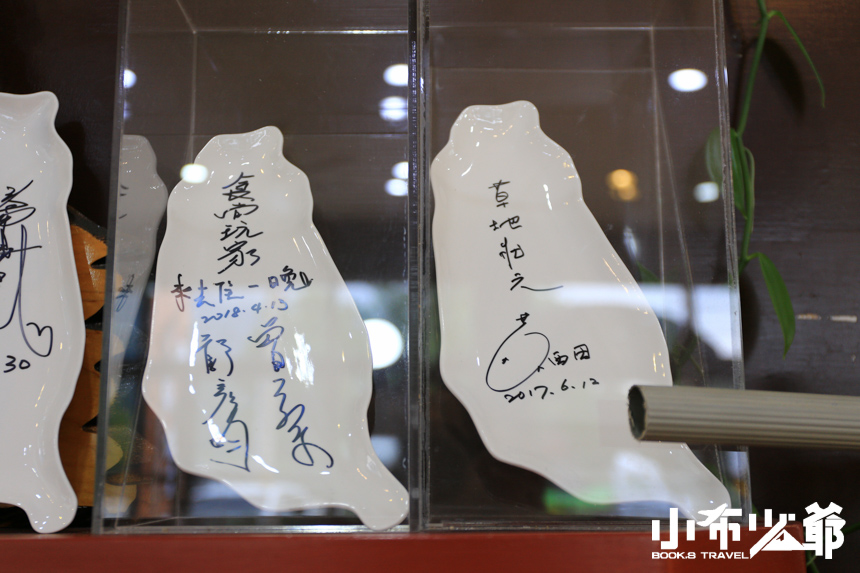 30
食尚玩家
來去住一晚
2018.4.13
曾子余
郭彥均
草地狀元
西田
2017.6.12
小布少爺
BOOK.S TRAVEL